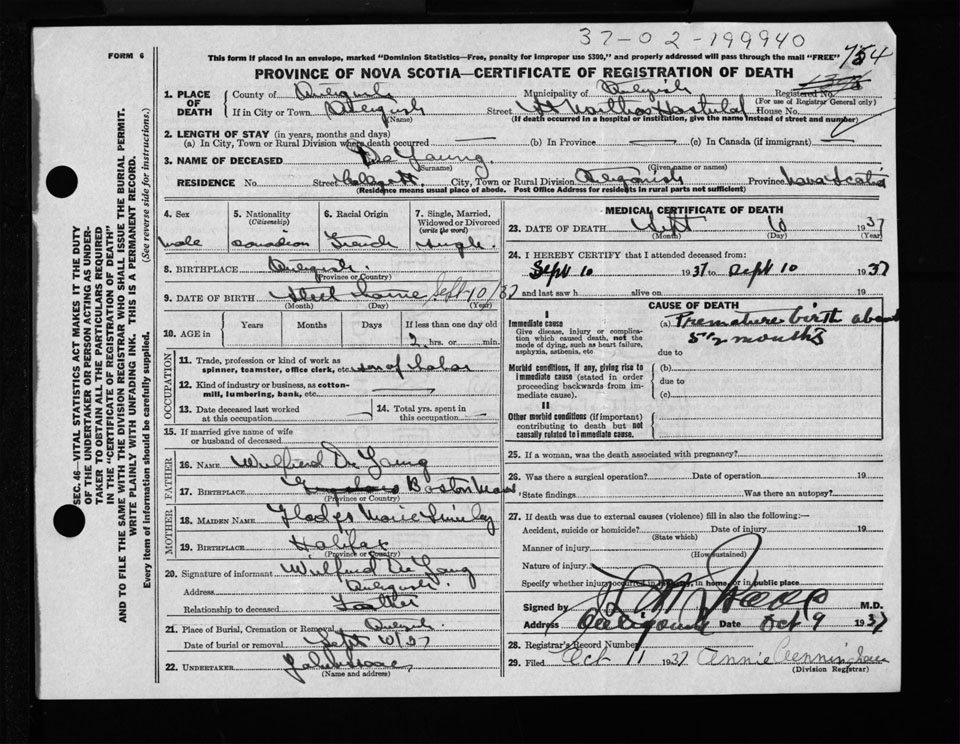 37-02-199940
FORM 6
This form if placed in an envelope, marked "Dominion Statistics—Free, penalty for improper use $300," and properly addressed will pass through the mail "FREE"
754
PROVINCE OF NOVA SCOTIA—CERTIFICATE OF REGISTRATION OF DEATH
SEC. 46—VITAL STATISTICS ACT MAKES IT THE DUTY
OF THE UNDERTAKER OR PERSON ACTING AS UNDER-
TAKER TO OBTAIN ALL THE PARTICULARS REQUIRED
IN THE "CERTIFICATE OF REGISTRATION OF DEATH"
AND TO FILE THE SAME WITH THE DIVISION REGISTRAR WHO SHALL ISSUE THE BURIAL PERMIT.
WRITE PLAINLY WITH UNFADING INK. THIS IS A PERMANENT RECORD.
Every item of information should be carefully supplied. (See reverse side for instructions.)
1. PLACE OF DEATH
County of
Municipality of
Registered No.
(For use of Registrar General only)
If in City or Town
(Name)
Street St Marthas Hospital House No.
(If death occurred in a hospital or institution, give the name instead of street and number)
2. LENGTH OF STAY (in years, months and days)
(a) In City, Town or Rural Division where death occurred (b) In Province (c) In Canada (if immigrant)
3. NAME OF DECEASED De Young
(Surname) (Given name or names)
RESIDENCE No. Street City, Town or Rural Division Antigonish Province Nova Scotia
(Residence means usual place of abode. Post Office Address for residents in rural parts not sufficient)
4. Sex
male
5. Nationality
(Citizenship)
Canadian
6. Racial Origin
French
7. Single, Married,
Widowed or Divorced
(write the word)
Single
8. BIRTHPLACE
(Province or Country)
9. DATE OF BIRTH Sept 10/37
(Month) (Day) (Year)
10. AGE in
Years Months Days If less than one day old
2 hrs. or min.
OCCUPATION
11. Trade, profession or kind of work as
spinner, teamster, office clerk, etc.
12. Kind of industry or business, as cotton-
mill, lumbering, bank, etc.
13. Date deceased last worked
at this occupation
14. Total yrs. spent in
this occupation
15. If married give name of wife
or husband of deceased
FATHER
16. NAME Wilfred De Young
17. BIRTHPLACE Boston Mass
(Province or Country)
MOTHER
18. MAIDEN NAME Gladys Marie
19. BIRTHPLACE Halifax
(Province or Country)
20. Signature of informant Wilfred De Young
Address
Relationship to deceased Father
21. Place of Burial, Cremation or Removal
Date of burial or removal Sept
22. UNDERTAKER
(Name and address)
MEDICAL CERTIFICATE OF DEATH
23. DATE OF DEATH Sept 10 1937
(Month) (Day) (Year)
24. I HEREBY CERTIFY that I attended deceased from:
Sept 10 1937 to Sept 10 1937
and last saw h alive on 19
CAUSE OF DEATH
I
Immediate cause
Give disease, injury or complica-
tion which caused death, not the
mode of dying, such as heart failure,
asphyxia, asthenia, etc
(a) Premature birth about
5½ months
due to
Morbid conditions, if any, giving rise to
immediate cause (stated in order
proceeding backwards from im-
mediate cause).
(b)
due to
(c)
II
Other morbid conditions (if important)
contributing to death but not
causally related to immediate cause.
25. If a woman, was the death associated with pregnancy?
26. Was there a surgical operation? Date of operation 19
State findings Was there an autopsy?
27. If death was due to external causes (violence) fill in also the following:—
Accident, suicide or homicide? Date of injury 19
(State which)
Manner of injury
(How sustained)
Nature of injury
Specify whether injury occurred in industry, in home, or in public place
Signed by M.D.
Address Antigonish Date Oct 9 1937
28. Registrar's Record Number
29. Filed Oct 11 1937 Annie
(Division Registrar)